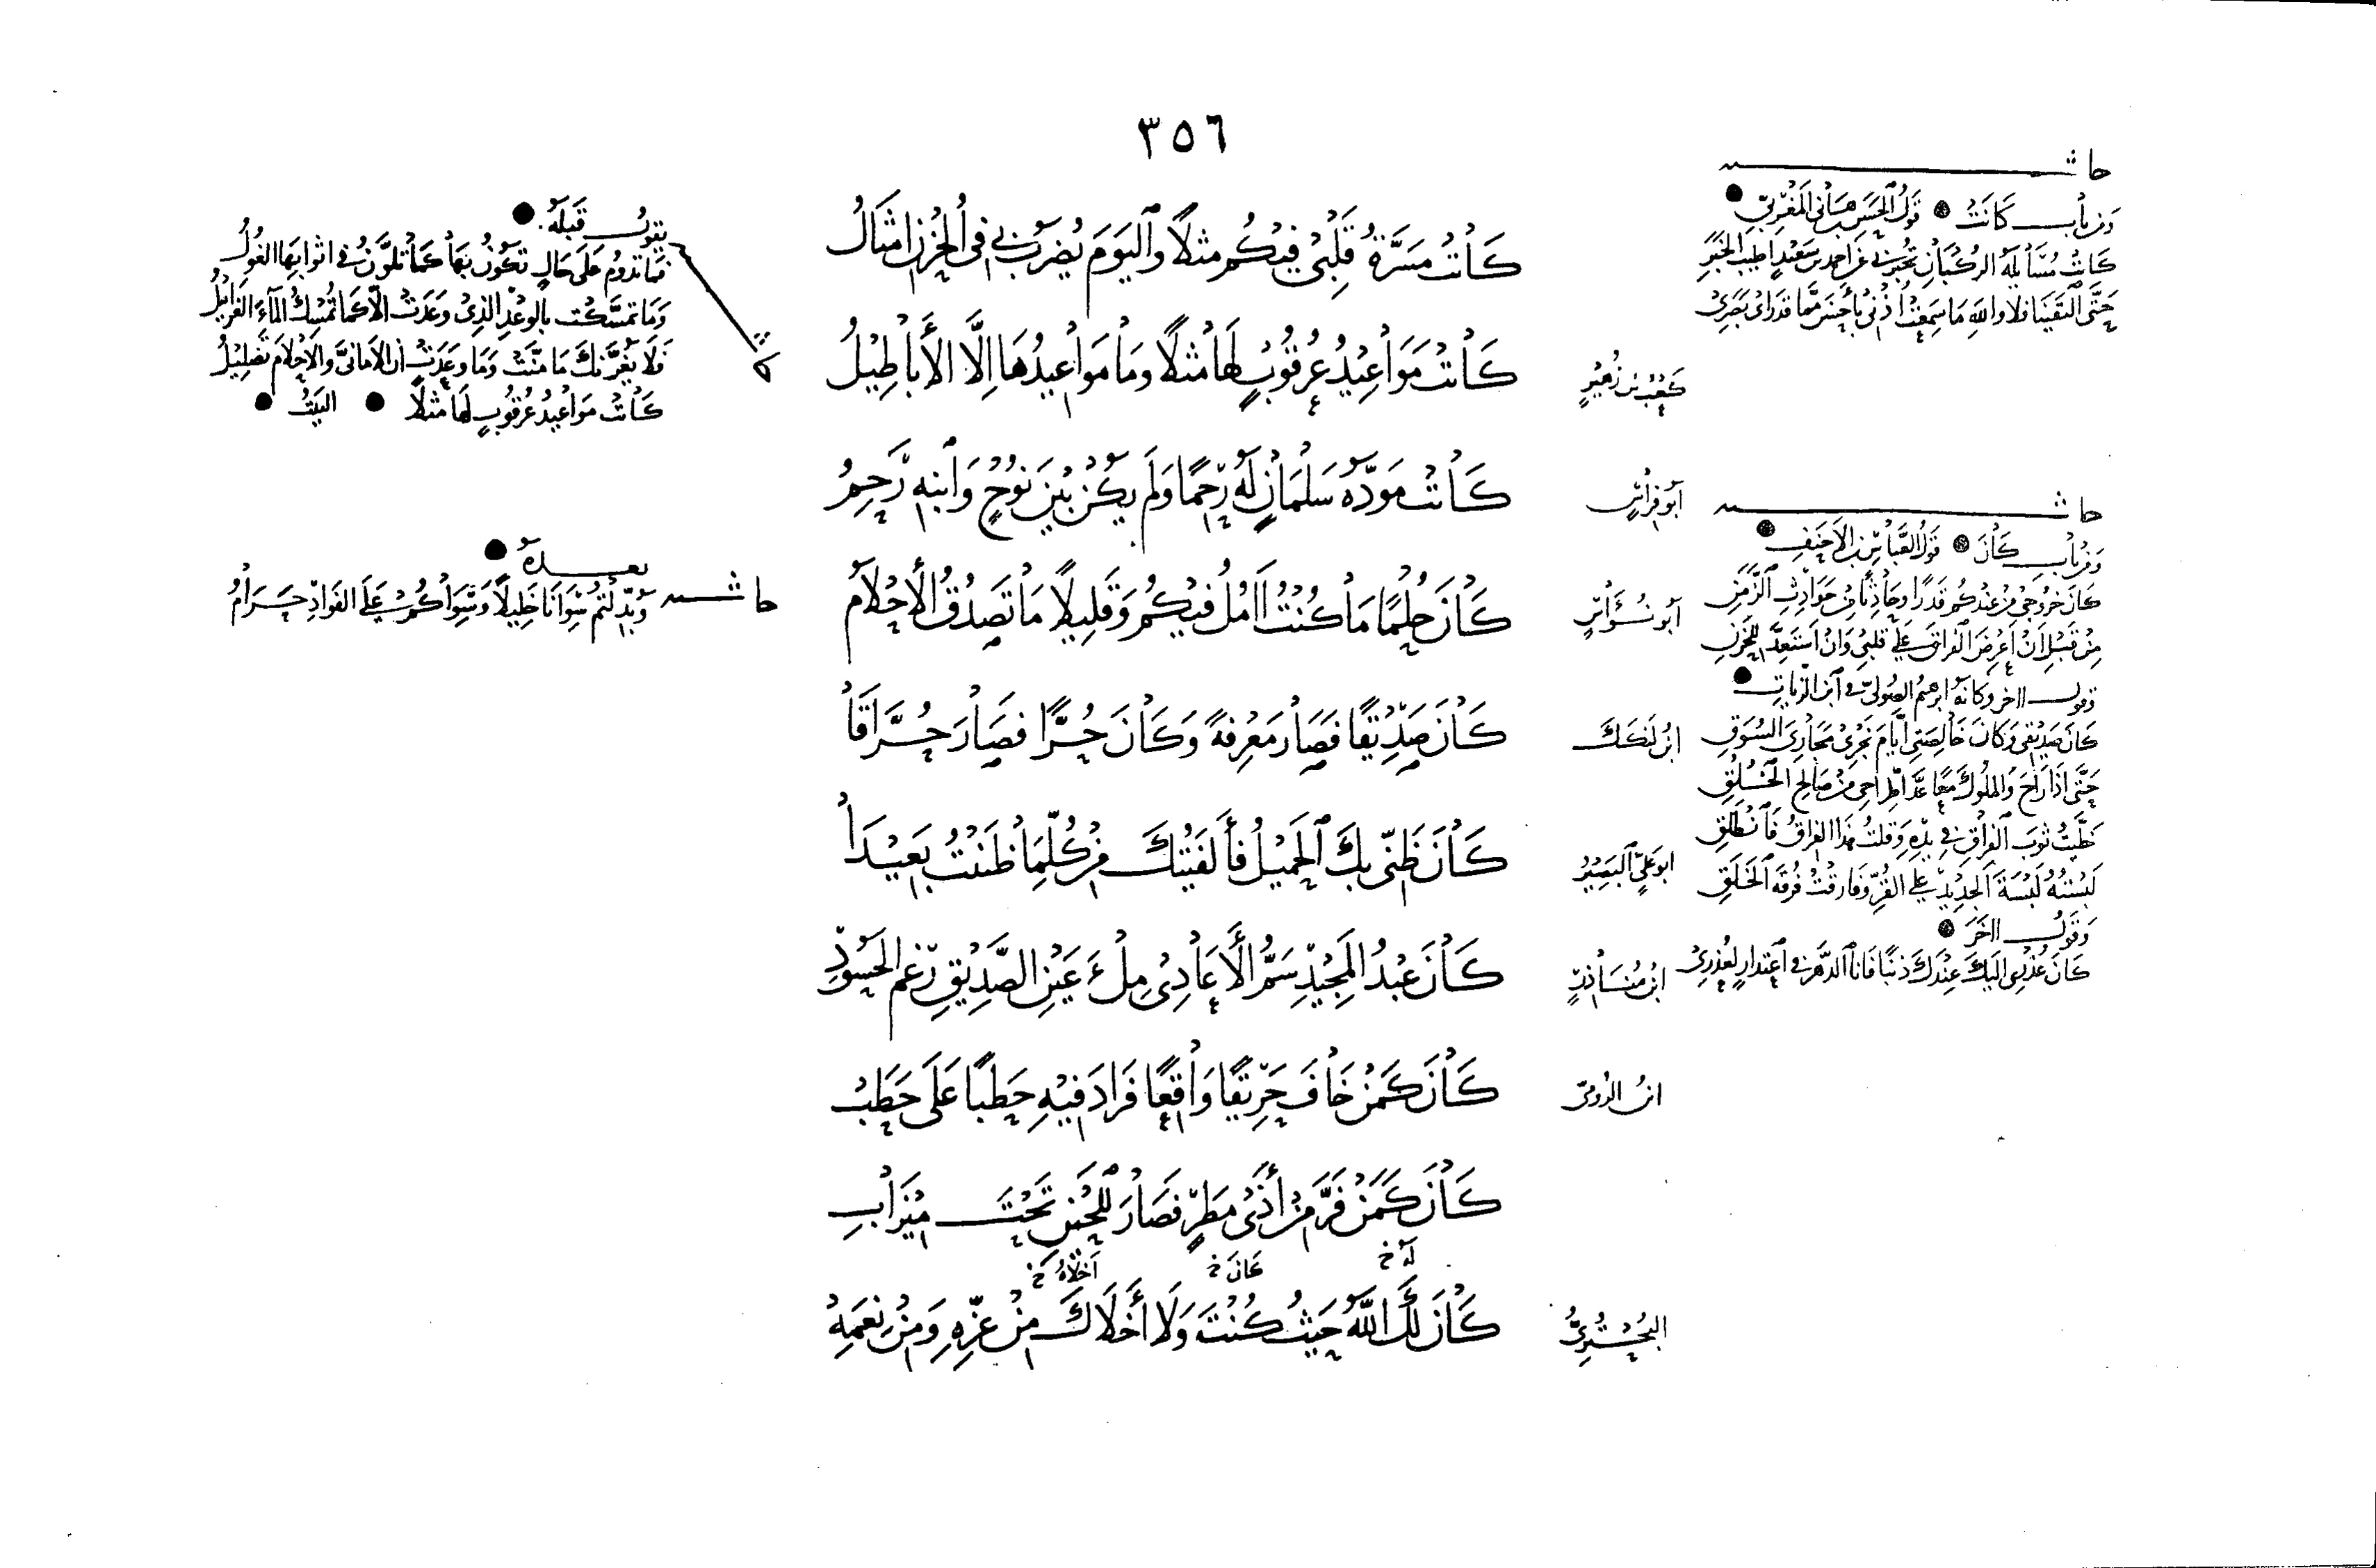 ٣٥٦
كَانَتْ مَسَرَّةُ قَلْبِي فِيكُم مثلًا وَاليَوْمَ يُضْرَبُ بِي فِي الحُزْنِ امْثَالُ
كَعْبُ بْن زُهَيرٍ
كَانَتْ مَوَاعِيْدُ عُرْقُوبٍ لَهَا مَثَلًا وَمَا مَوَاعِيدُهَا اِلَّا الأَبَاطِيْلُ
أبو فراسٍ
كَانَتْ مَوَدَّةُ سَلْمَانٍ لَهُ رَحِمًا وَلَم يَكُنْ بَيْنَ نُوْحٍ وَابْنِهِ رَحِمُ
أبو نُوَاسٍ
كَانَ حُلْمًا مَا كُنْتُ اَامُلُ فيْكُمُ وَقَلِيلًا مَا تَصْدُقُ الأَحْلَامُ
ابن لنكك
كَانَ صَدِيْقًا فَصَارَ مَعْرِفةً وَكَانَ حُرًّا فصَارَ حُرَّاقَا
ابو عَلِيٍّ البَصِيرُ
كَانَ ظَنِّي بِكَ الجَمِيْلُ فأَلفَيْتُكَ مِنْ كُلِّمَا ظَنَنْتُ بَعِيْدَا
ابن مُنَاذِرٍ
كَانَ عَبْدُ المَجِيْدِ سَمَّ الأَعَادِيْ مِلْءَ عَيْنِ الصَّدِيْقِ رَغْمَ الحَسُوْدِ
ابن الرُّومِيّ
كَانَ كَمَنْ خَافَ حَرِيْقًا وَاقِعًا فَزَادَ فِيْهِ حَطَبًا عَلَى حَطَبْ
كَانَ كَمَنْ فَرَّ مِنْ أَذَىْ مَطَرٍ فَصَارَ لِلْحَيْنِ تَحْتَ مِيْزَابِ
لَهُ خ كَانَ خ اَخْلَاهُ خ
البُحْتُرِيُّ
كَانَ لَكَ اللَّهُ حَيْثُ كُنْتَ وَلَا أَخْلَاكَ مِنْ عِزِّهِ وَمِنْ نِعَمِهْ
حاشـــــــــــــــــــــــــية
وَمن بابِ كَانَتْ قَوْلُ الحَسَن بْن هَانِئ المَغْرِبِيّ
كَانَتْ مُسَائلةُ الركْبَانِ تُخْبِرُنِي عَنْ احمد بن سَعِيْدٍ اَطيَبَ الخَبَرِ
حَتَّى التَقَيْنَا فلا واللهِ مَا سَمِعَتْ اُذْنِي بِأَحْسَنَ مِمَّا قدرَاى بَصَرِيْ
حاشـــــــــــــــــــــــــية
وَمن بابِ كَانَ قَوْلُ العَبَّاسِ بنِ الأحْنَفِ
كَانَ خُرُوجِي مِنْ عِنْدِكُم قَدَرًا وحَادِثًا مِنْ حَوَادِثِ الزَّمَنِ
مِنْ قَبْلِ اَنْ أَعْرِضَ الفِرَاقَ عَلَى قَلبِي وَانْ اَسْتَعِدَّ لِلحَزَنِ
وقول اخر وكأنه ابرهيمُ الصُوليّ في ابن الزيات
كَانَ صَدِيْقِي وَكَانَ خَالِصَتِي اَيَّامَ نَجْرِيْ مَجَارِيَ السُوَقِ
حَتَّى اذَا رَاحَ وَالمُلوكَ مَعًا عَدَّ اطِّرَاحِي مِنْ صَالِحِ الخُلُقِ
خَلَّيْتُ ثَوْبَ الفِرَاقِ فِي يَدِهِ وَقلتُ هٰذَا الفِرَاقُ فَانْطَلِقِ
لَبِسْتُهُ لُبْسَةَ الجَدِيْدِ عَلَى القُرِّ وَفَارَقْتُ فُرقَةَ الخَلَقِ
وَقَوْلُ اخَرَ
كَانَ عُذْرِي اِلَيْكَ عِنْدَكَ ذَنْبًا فَانَا الدَّهْرَ فِي اعْتِذَارٍ لِعُذْرِيْ
يقول قَبْلَهُ
فمَا تَدُومُ عَلَى حَالٍ تَكُونُ بِهَا كمَا تَلَوَّنُ في اثوابِهَا الغُوْلُ
وَمَا تَمَسَّكَتْ بالوَعْدِ الذِيْ وَعَدَتْ الاّ كَمَا تُمْسِكُ المَاءَ الغَرَابِيْلُ
فَلَا يَغُرَّنَّكَ مَا مَنَّتْ وَمَا وَعَدَتْ اِن الاَمَانِيَّ والاَحْلَامَ تَضْلِيْلُ
كَانَتْ مَوَاعِيدُ عُرْقُوبٍ لَهَا مَثَلًا البَيْتُ
حاشـــية بعــــده
وَبُدِّلْتُمْ سِوَانَا خَلِيلًا وَسِوَاكُمْ عَلَى الفُوَادِ حَرَامُ